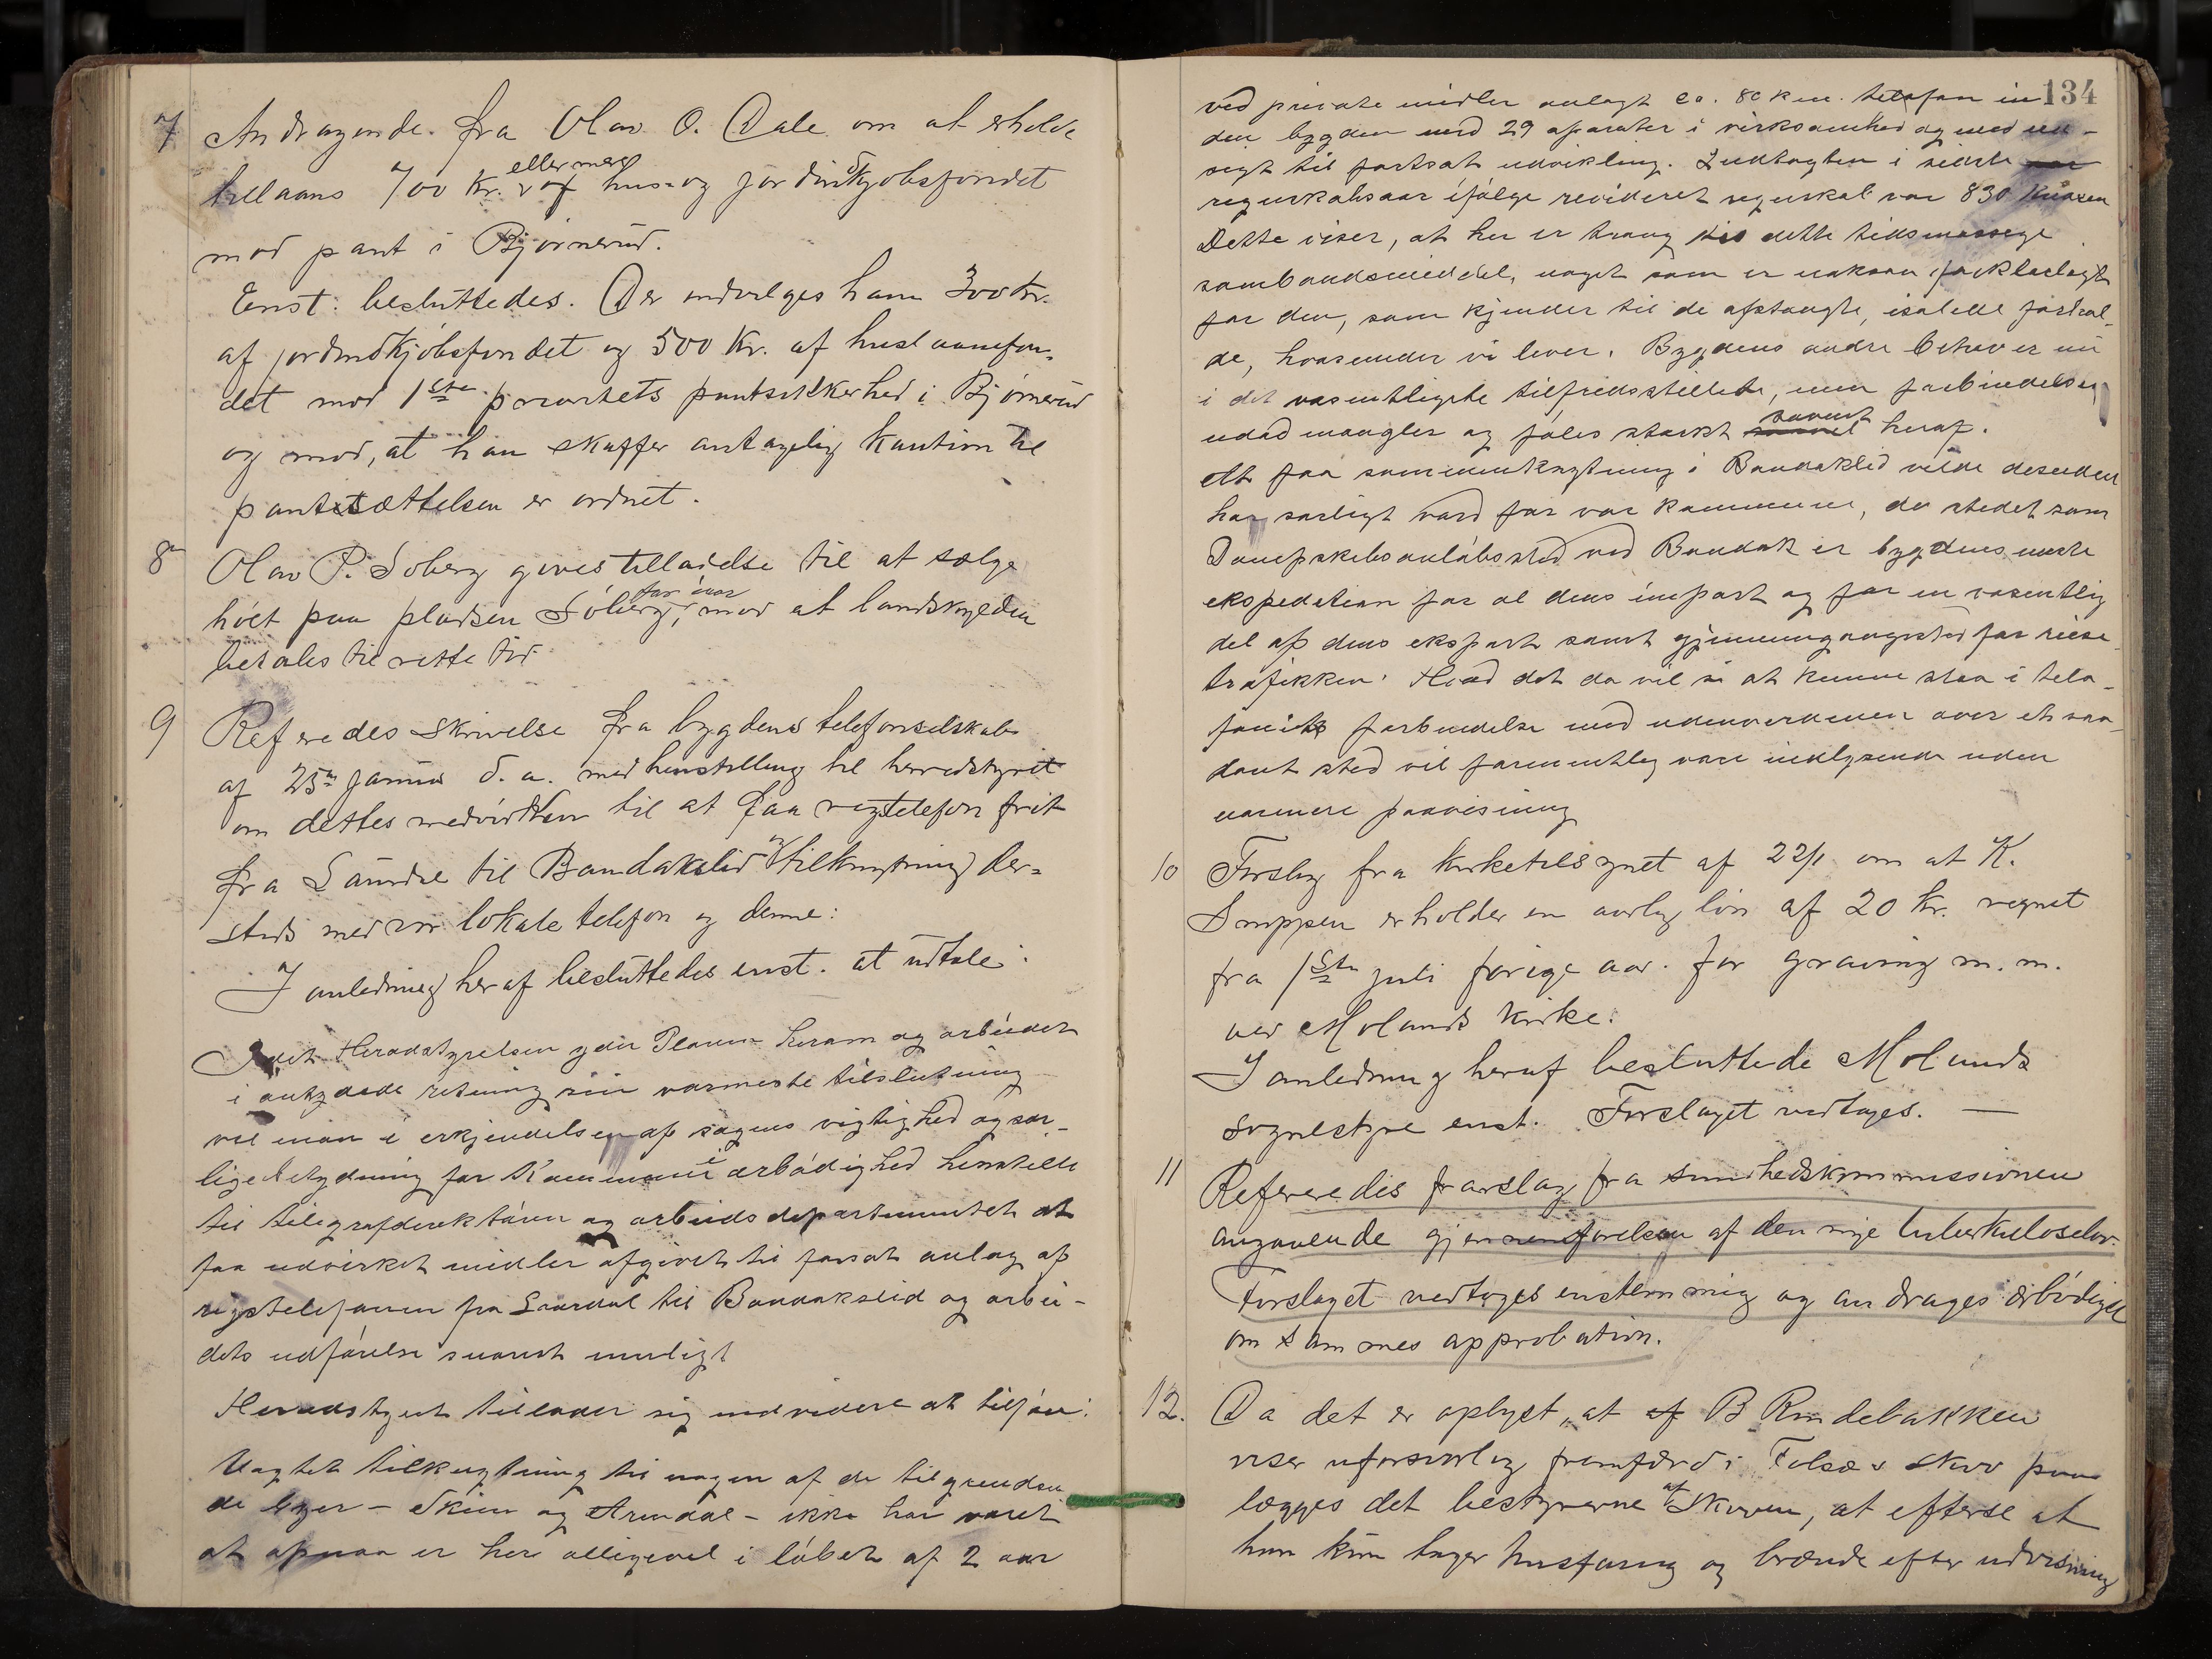 7 Andragende fra Olav O. Dale om at erholde
tillaans 700 Kr. eller mere af hus- og jordindkjøbsfondet
mod pant i Bjørnerud.
Enst: besluttedes. Der indvilges ham 300 Kr.
af jordindkjøbsfondet og 500 Kr. af huslaanefon-
det mod 1ste prioritets pantsikkerhed i Bjørnerud
og mod, at han skaffer antagelig kaution til
pantsættelsen er ordnet.
8 Olav P. Soberg gives tilladelse til at sælge
høet paa pladsen Søberg, for iaar mod at landskylden
betales til rette tid.
9 Referedes skrivelse fra bygdens telefonselskab
af 25de januar d. a. med henstilling til herredstyret
om dettes medvirkken til at faa rigstelefon frit
fra Laurdal til Bandakslid og tilknytning der-
steds med vor lokale telefon og denne:
I anledning heraf besluttedes enst. at udtale:
Idet Heradstyrelsen yder Planen herom og arbeidet
i antydede retning sin varmeste tilslutning
vil man i erkjendelsen af sagens vigtighed og sær-
lige betydning for Kommunen i ærbødighed henstille
til telegrafdirektøren og arbeidsdepartementet at
faa udvirket midler afgivet til forsat anlæg af
rigstelefonen fra Laardal til Bandakslid og arbei-
dets udførelse snarest muligt
Heradstyret tillader sig endvidere at tilføie:
Uagtet tilknytning til nogen af de tilgrændsen
de byer - Skien og Arendal - ikke har været
at opnaa er her alligevel i løbet af 2 aar
134
ved private midler anlagt ca. 80 km. telefon in
den bygden med 29 aparater i virksomhed og med ud-
sigt til fortsat udvikling. Indtægten i sidste
regnskabsaar ifølge revideret regnskab var 830 kroner
Dette viser, at her er trang til dette tidsmæssige
sambandsmiddel, noget som er naksom forklarlagt
for den, som kjender til de afstængte, isolerte forhol-
de, hvorunder vi lever. Bygdens andre behov er nu
i det væsentligste tilfredsstillet, men forbindelsen
udad mangler og føles stærkt savnet heraf.
At faa sammenknytning i Bandakslid vilde desuden
ha særligt værd for vor kommune, da stedet som
Dampskibsanløbssted ved Bandak er bygdens meste
ekspedition for al dens import og for en væsentlig
del af dens eksport samt gjennemgangssted for reise-
trafikken. Hvad det da vil si at kunne staa i tele-
fonisk forbindelse med udenverdenen over et saa-
dant sted vil formentlig være indlysende uden
nærmere paavisning
10 Forslag fra kirketilsynet af 22/1 om at K.
Snippen erholder en aarlig løn af 20 kr. regnet
fra 1ste juli forige aar for graving m. m.
ved Molands kirke.
I anledning heraf besluttede Molands
sognestyre enst. Forslaget vedtages. —
11 Referedes forslag fra sundhedskommissionen
angaaende gjennemførelsen af den nye tuberkuloselov.
Forslaget vedtoges enstemmig og andrages ærbødigst
om sammes approbation.
12. Da det er oplyst, at af B Rindebakken
viser uforsvarlig fremfærd i Folsæ skov paa
lægges det bestyrerne af Skoven, at efterse at
han kun tager husfang og brænde efter udvisning